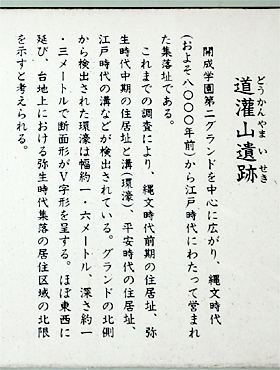 どうかんやまいせき
道灌山遺跡
開成学園第二グランドを中心に広がり、縄文時代
(およそ八〇〇〇年前)から江戸時代にわたって営まれ
た集落址である。
これまでの調査により、縄文時代前期の住居址、弥
生時代中期の住居址と溝(環濠)、平安時代の住居址、
江戸時代の溝などが検出されている。グランドの北側
から検出された環濠は幅約一・六メートル、深さ約一
・三メートルで断面形がV字形を呈する。ほぼ東西に
延び、台地上における弥生時代集落の居住区域の北限
を示すと考えられる。